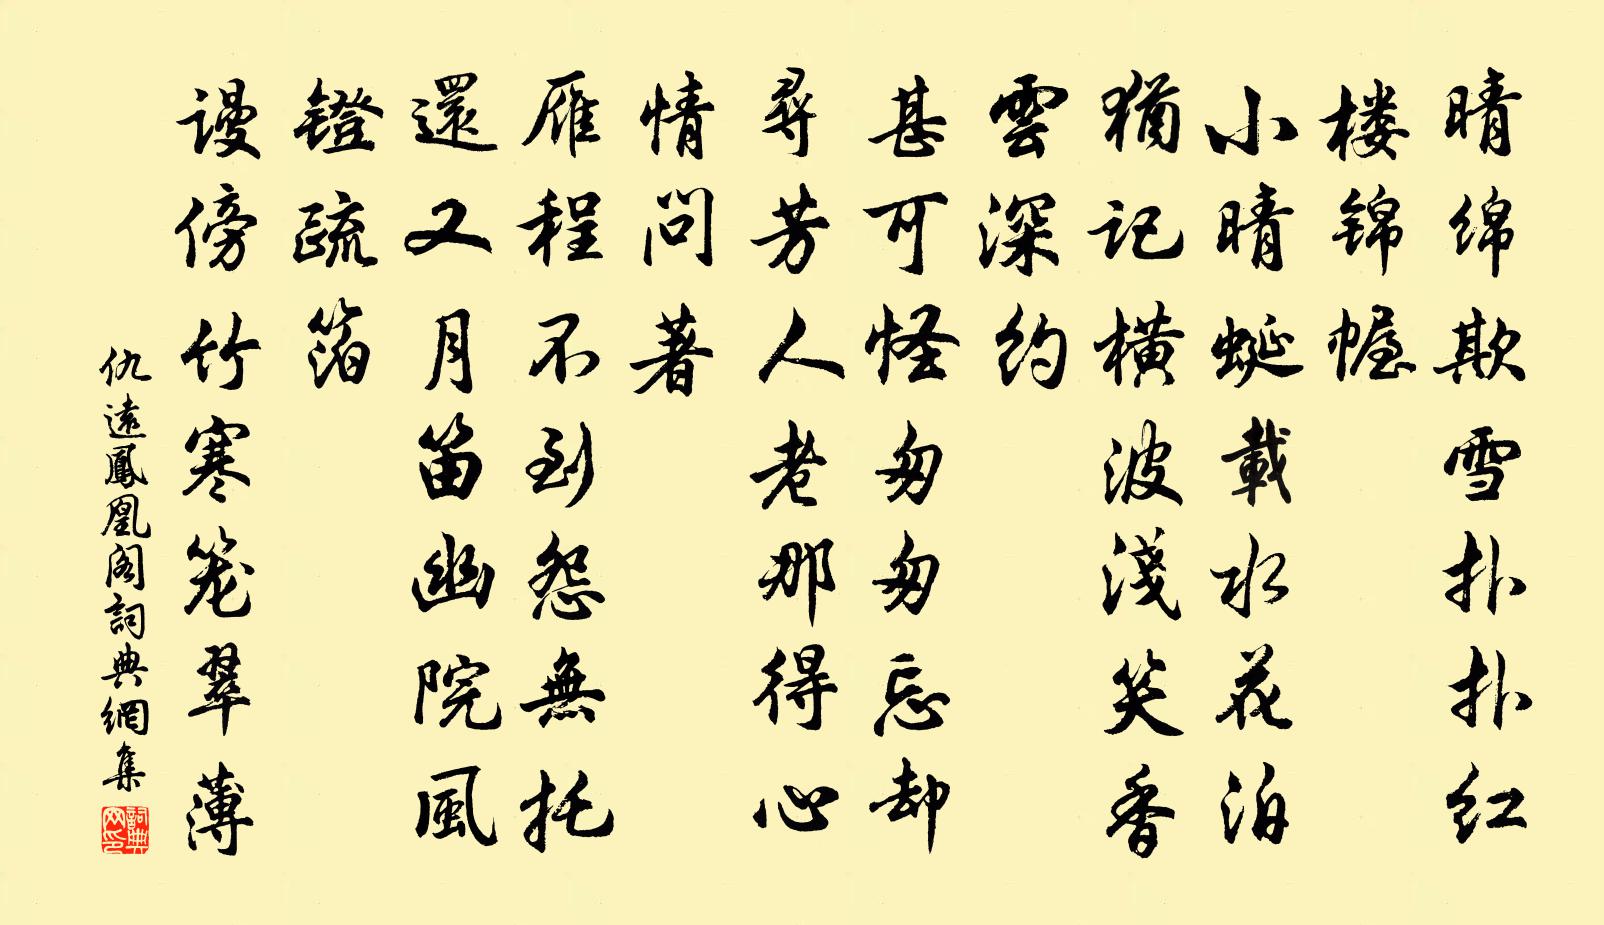 晴绵欺雪扑扑红
楼锦幄
小晴蜒載水花泊
猶记横波淺笑香
雲深约
甚可怪匆匆忘却
尋芳人老那得心
情问著
雁程不到怨無托
還又月笛幽院風
鐙疏箔
谩傍竹寒笼翠薄
仇遠鳳凰阁詞典網集
詞典网印